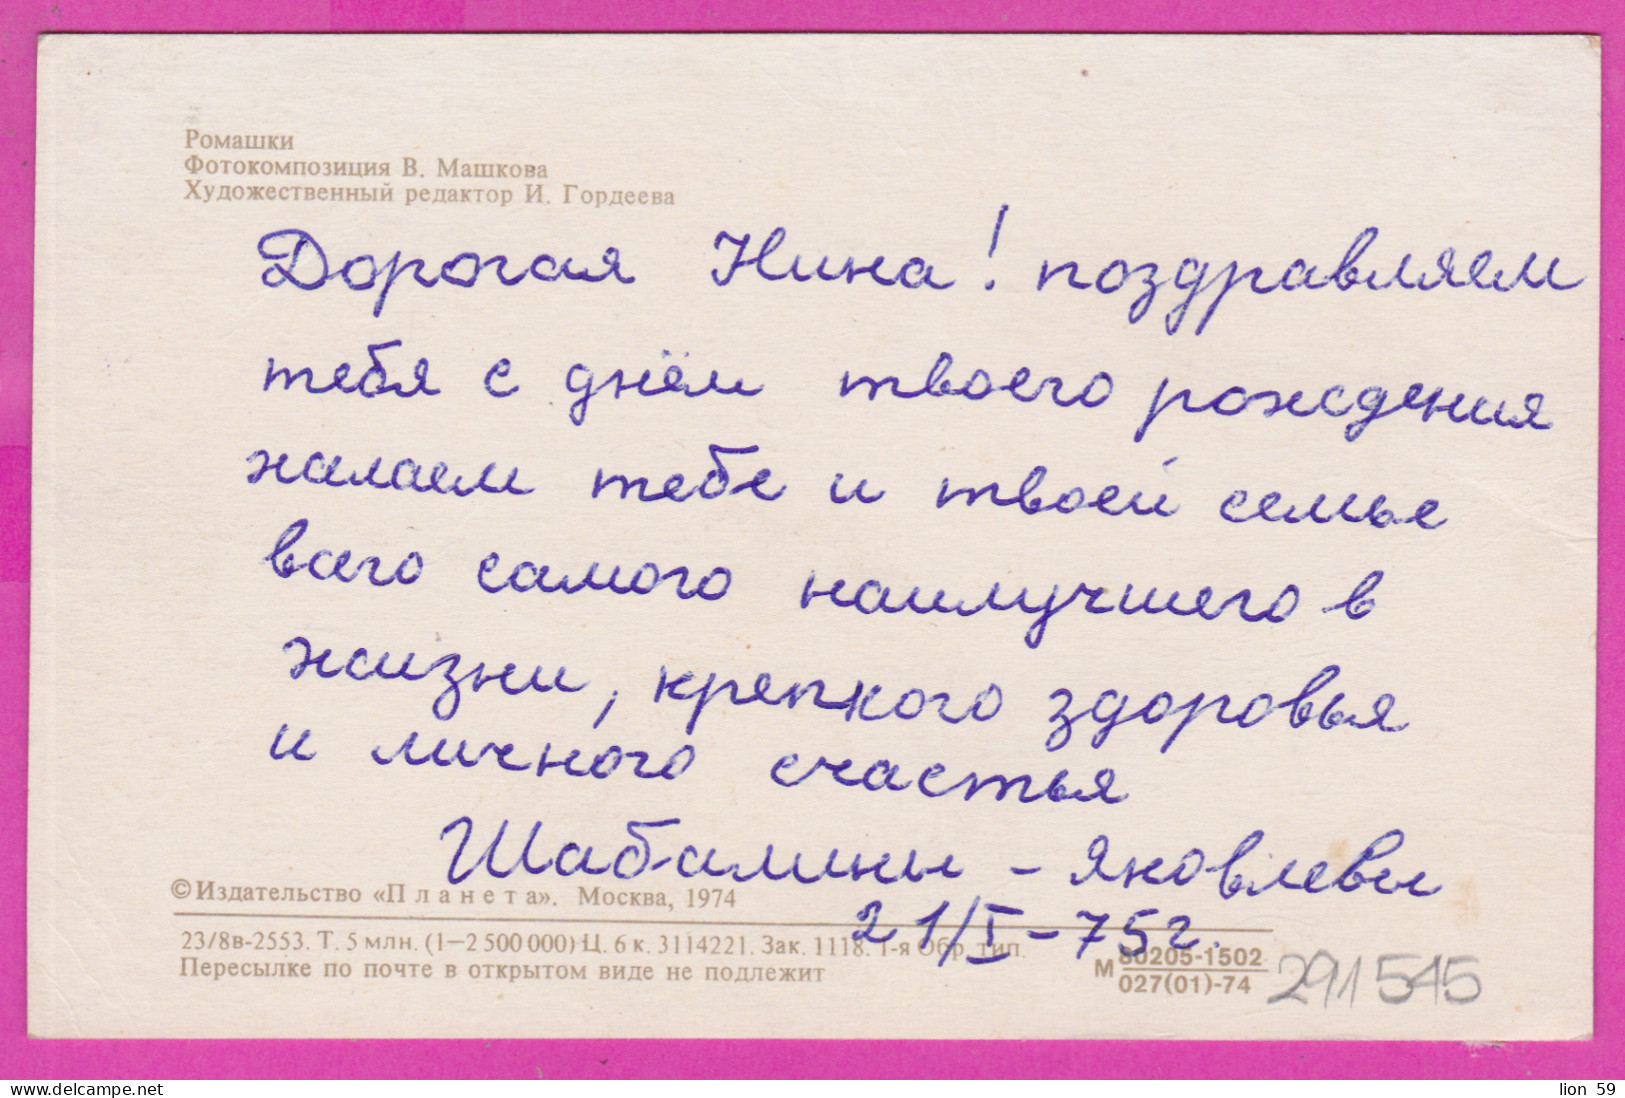 Ромашки
Фотокомпозиция В. Машкова
Художественный редактор И. Гордеева
Дорогая Нина! поздравляем
тебя с днём твоего рождения
желаем тебе и твоей семье
всего самого наилучшего в
жизни, крепкого здоровья
и личного счастья
Шабалины - Яковлевы
21/I - 75 г.
©Издательство «Планета». Москва, 1974
23/8в-2553. Т. 5 млн. (1—2 500 000) Ц. 6 к. 3114221. Зак. 1118. 1-я Обр. тип.
Пересылке по почте в открытом виде не подлежит
М 80205-1502
027(01)-74
291545
www.delcampe.net
lion 59